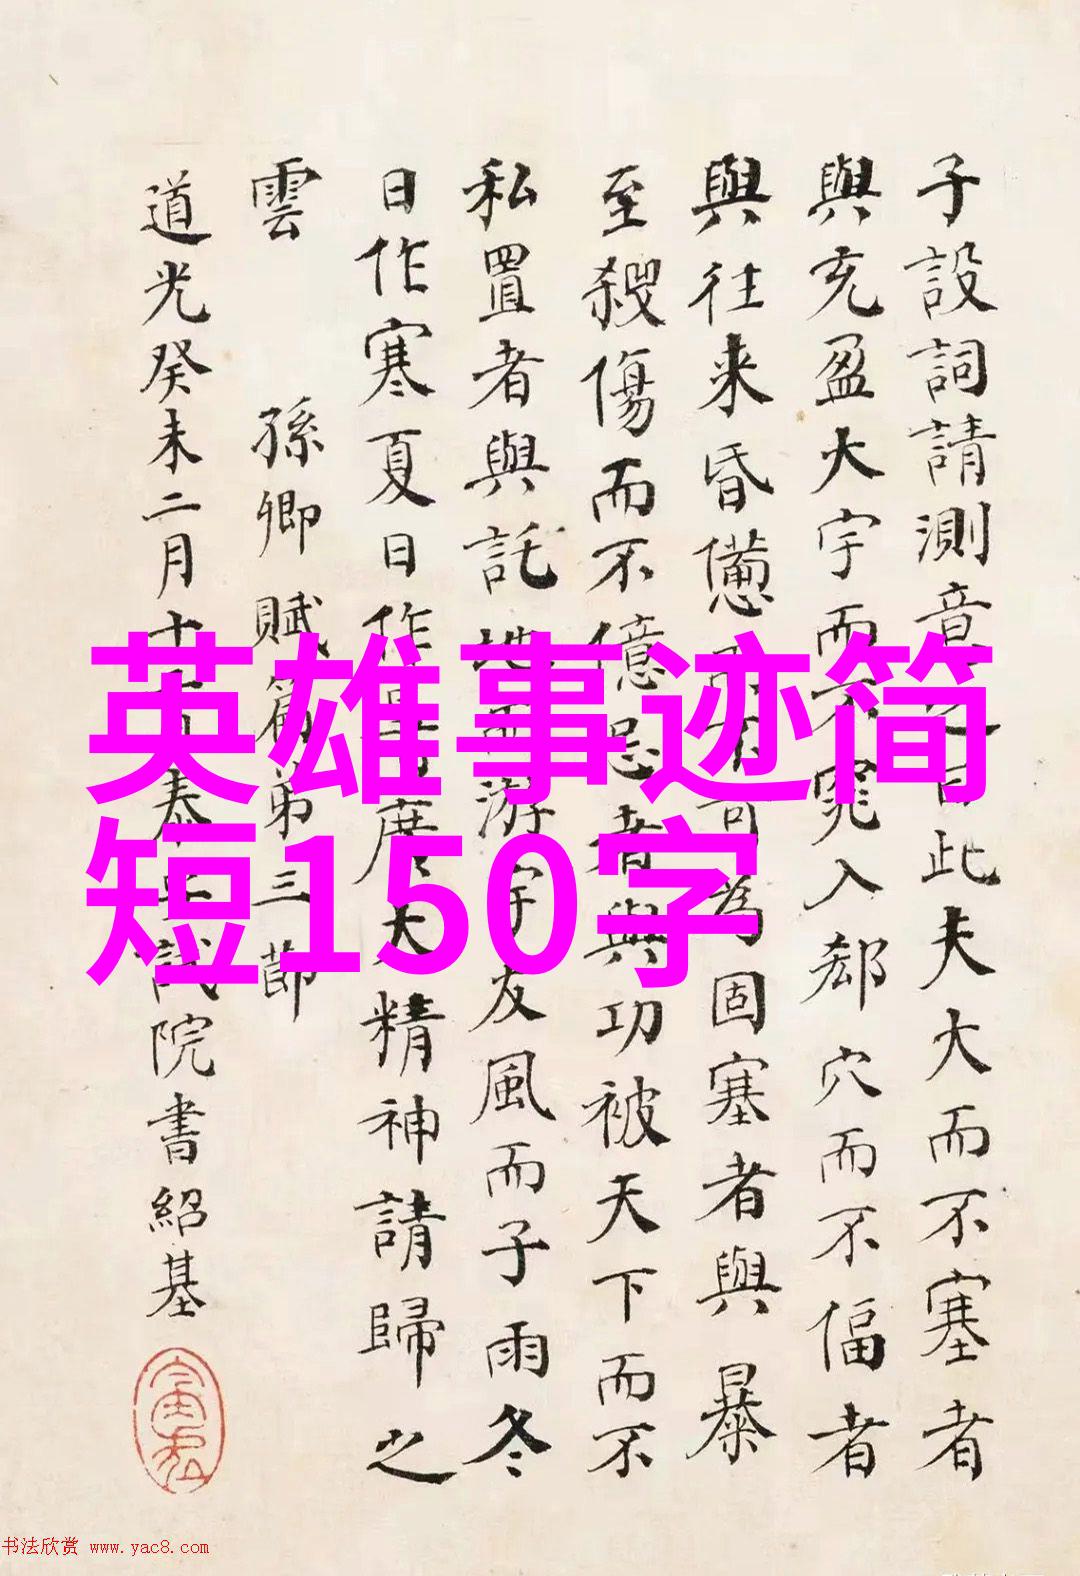 英雄事迹简
短150字
子設詞請測音之曰此夫大而不塞者
與充盈大宇而不窕入郄穴而不偪者
與往来昏憊而不可為固塞者與暴
至殺傷而不億忌者與功被天下而不
私置者與託地而游宇友風而子雨冬
日作寒夏日作暑廣大精神請歸之
雲 孫卿賦篇弟三節
道光癸未二月十 泰 試院書紹基
书法欣赏 www.yac8.com